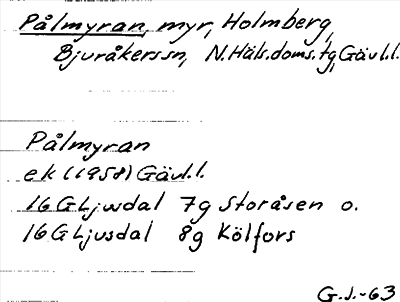 Pålmyran, myr, Holmberg,
Bjuråkerssn, N.Häls.doms.tg, Gävl.l.
Pålmyran
ek (1958) Gävl.l.
16 G Ljusdal 7g Storåsen o.
16 G Ljusdal 8g Kölfors
G.J.-63